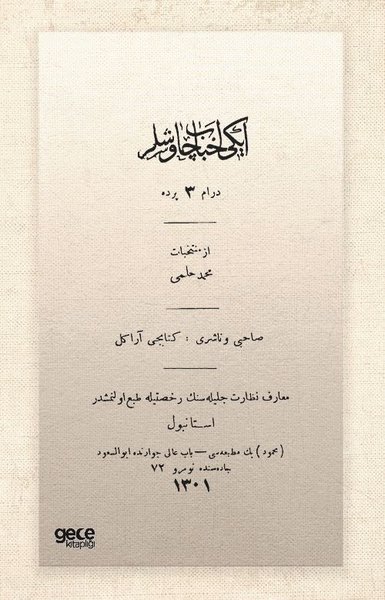 ایکی احباب چاوشلر
درام ٣ پرده
از منتخبات
محمد حلمی
صاحبی و ناشری : کتابجی آراکل
معارف نظارت جلیله‌سنك رخصتیله طبع اولنمشدر
استانبول
(محمود) بك مطبعه‌سی — باب عالی جوارنده ابوالسعود
جاده‌سنده نومرو ٧٢
١٣٠١
gece
kitaplığı